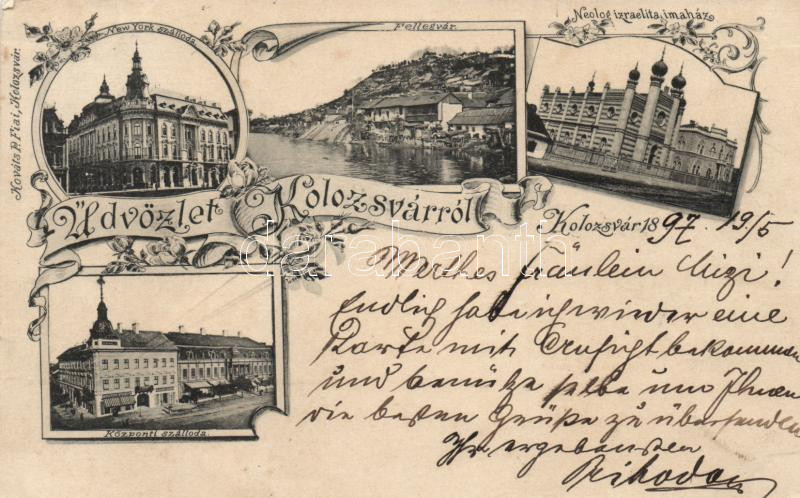 New York szálloda.
Fellegvár.
Neolog izraelita imaház
Kováts P. Fiai, Kolozsvár.
Üdvözlet Kolozsvárról
Kolozsvár 1897. 19/5
darabanth.com
Werthes Fräulein Mizi!
Endlich habe ich wieder eine
Karte mit Ansicht bekommen
und benütze selbe um Ihnen
die besten Grüße zu übersenden
Ihr ergebenster
Prihoda
Központi szálloda.